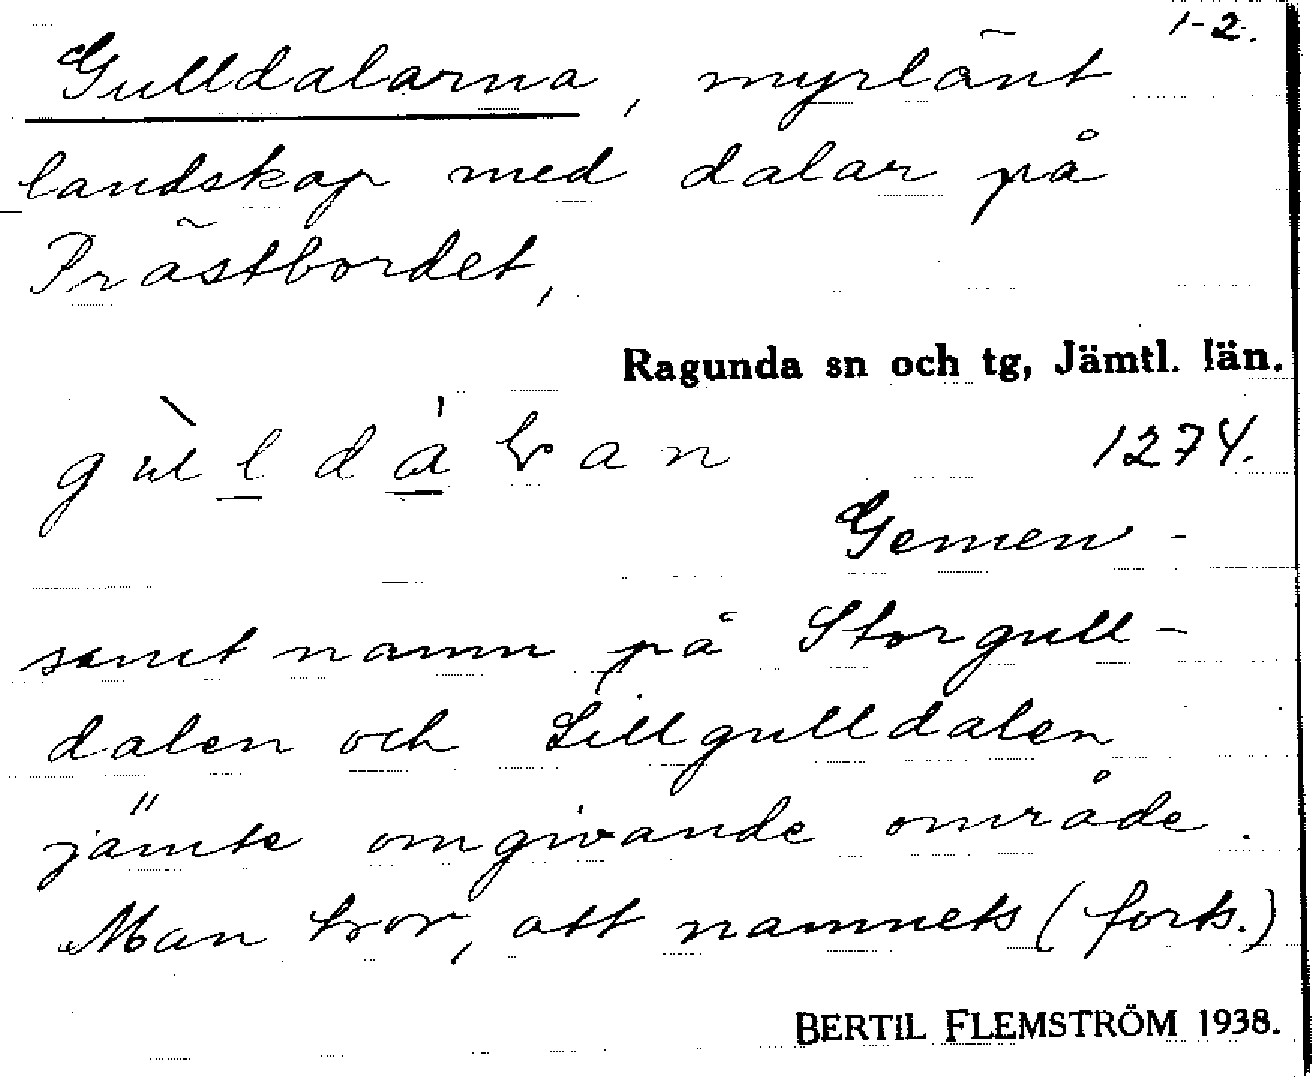 1-2.
Gulldalarna, myrlänt
landskap med dalar på
Prästbordet,
Ragunda sn och tg, Jämtl. län.
1274.
Gemen-
samt namn på Storgull-
dalen och Lillgulldalen
jämte omgivande område.
Man tror, att namnets (forts.)
BERTIL FLEMSTRÖM 1938.